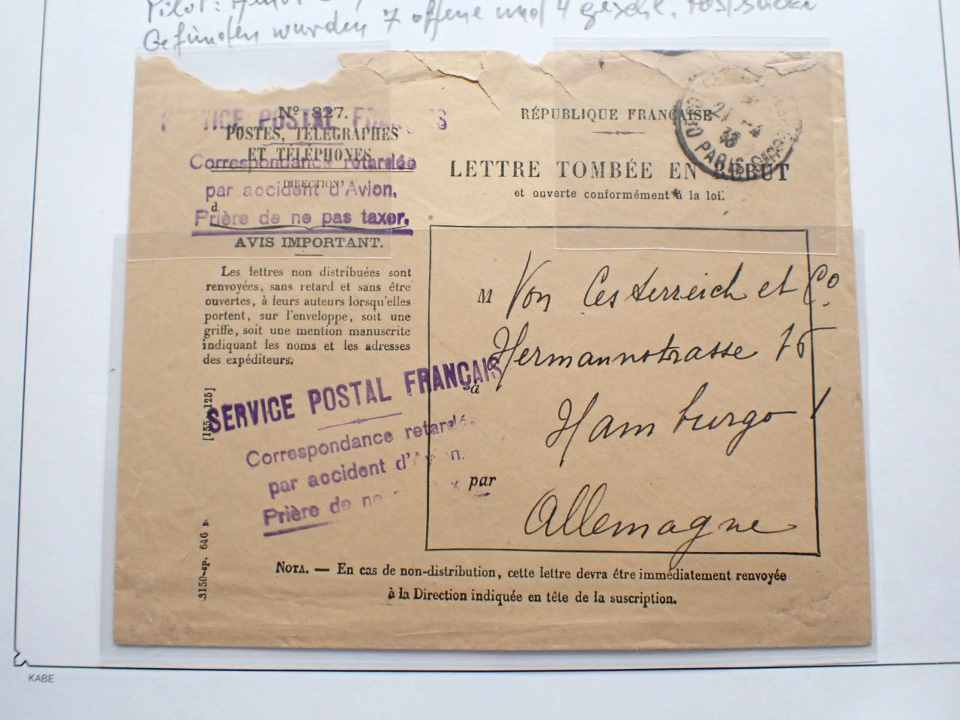 Pilot:
Gefunden wurden 7 offene und 4
SERVICE POSTAL FRANÇAIS
Nº 827.
POSTES, TÉLÉGRAPHES
ET TÉLÉPHONES
Correspondance retardée
DIRECTION
par accident d'Avion.
d
Prière de ne pas taxer.
AVIS IMPORTANT.
Les lettres non distribuées sont
renvoyées, sans retard et sans être
ouvertes, à leurs auteurs lorsqu'elles
portent, sur l'enveloppe, soit une
griffe, soit une mention manuscrite
indiquant les noms et les adresses
des expéditeurs.
RÉPUBLIQUE FRANÇAISE
LETTRE TOMBÉE EN REBUT
et ouverte conformément à la loi.
PARIS
M Von Oesterreich et Cº
Hermannstrasse 15
à
Hamburgo
par
Allemagne
SERVICE POSTAL FRANÇAIS
Correspondance retardée
par accident d'Avion.
Prière de ne
NOTA. — En cas de non-distribution, cette lettre devra être immédiatement renvoyée
à la Direction indiquée en tête de la suscription.
KABE